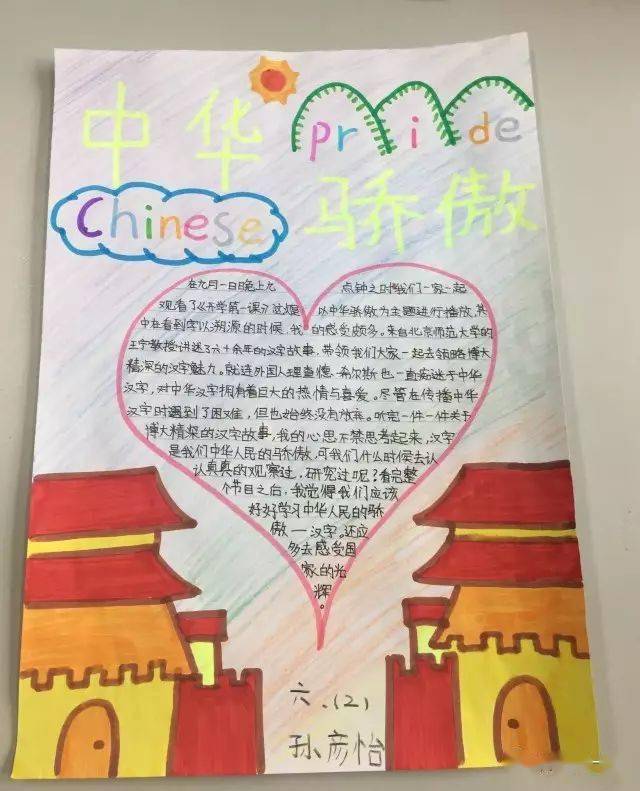 中华
pride
Chinese
骄傲
在九月一日晚上九 点钟之时我们一家一起
观看了《开学第一课》这期 以中华骄傲为主题进行播放,其
中在看到字以溯源的时候,我 的感受颇多。来自北京师范大学的
王宁教授讲述了六十余年的汉字故事,带领我们大家一起去领略博大
精深的汉字魅力。就连外国人理查德·希尔斯也一直痴迷于中华
汉字,对中华汉字拥有着巨大的热情与喜爱。尽管在传播中华
汉字时遇到了困难,但也始终没有放弃。听完一件一件关于
博大精深的汉字故事,我的心思不禁思考起来,汉字
是我们中华人民的骄傲,可我们什么时候去认
认真真的观察过,研究过呢?看完整
个节目之后,我觉得我们应该
好好学习中华人民的骄
傲——汉字。还应
多去感受国
家的光
辉。
六.(2)
孙彦怡